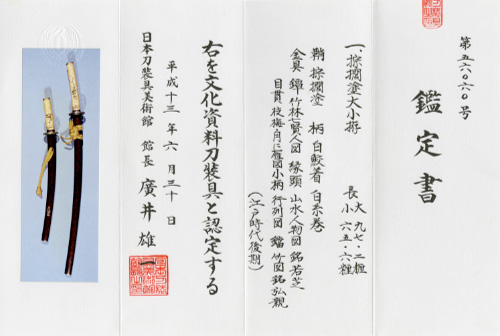 第五六〇六〇号
鑑定書
一、棕櫚塗大小拵
長 大 九七・二糎
小 六五・六糎
鞘 棕櫚塗 柄 白鮫着 白糸巻
金具 鐔 竹林七賢人図 縁頭 山水人物図 銘若芝
目貫 枝梅ニ月ニ雁図 小柄 行列図 鐺 竹図 銘弘親
(江戸時代後期)
右を文化資料刀装具と認定する
平成十三年六月三十日
日本刀装具美術館 館長 廣井雄一